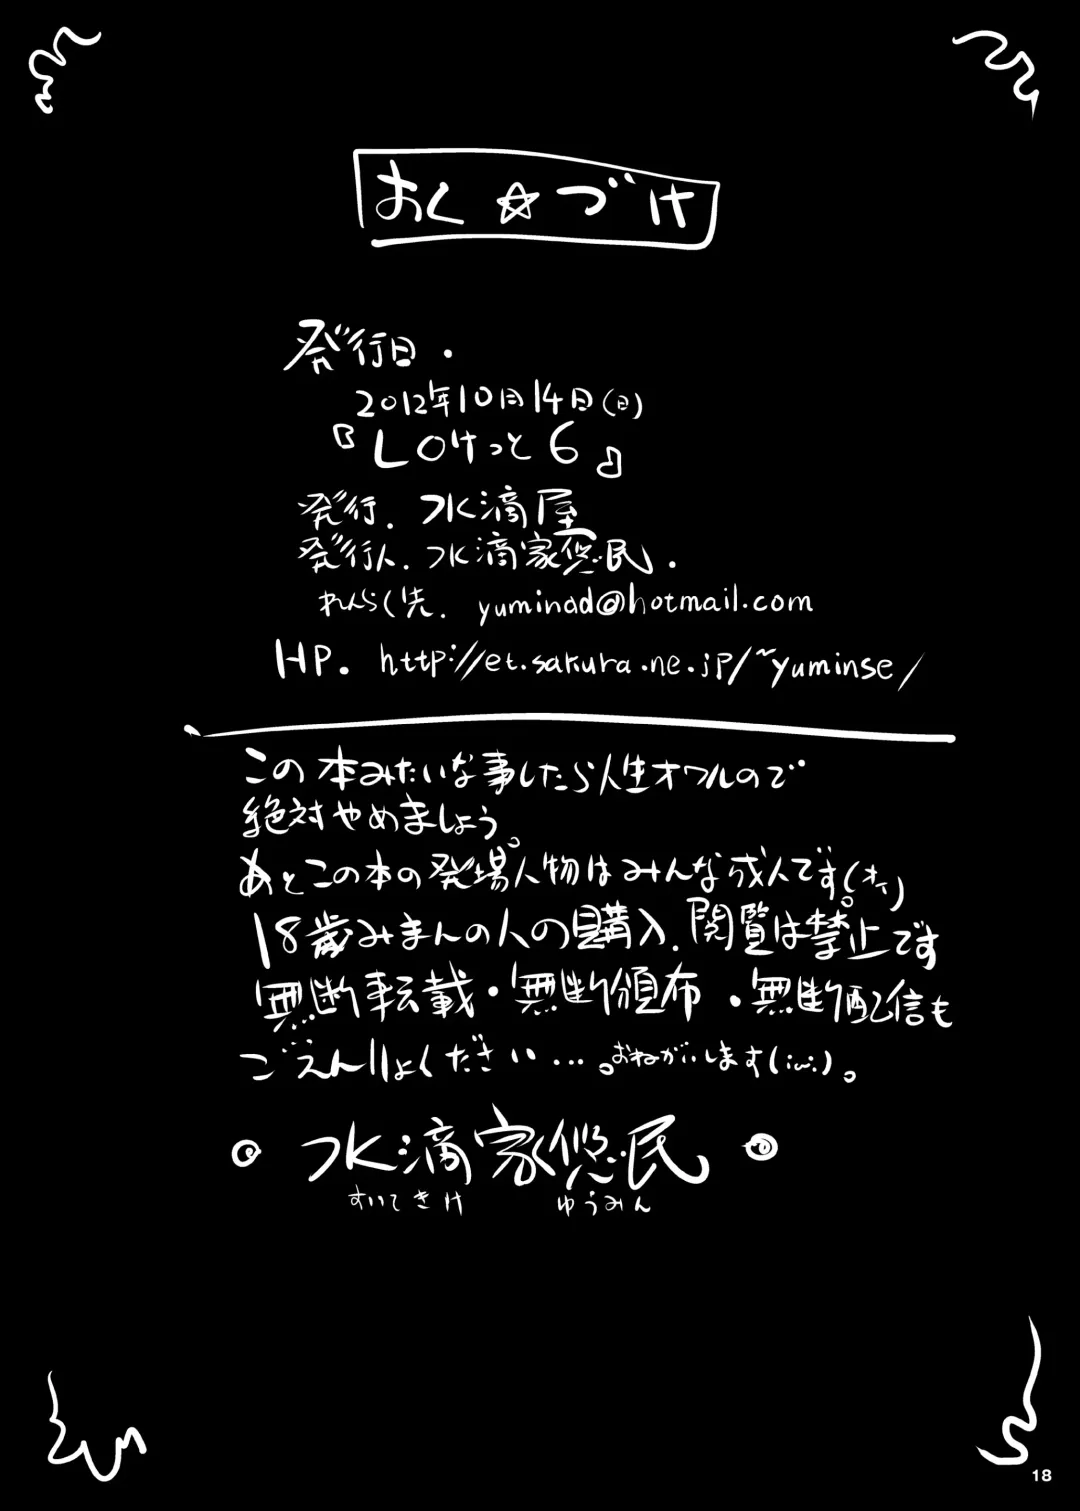 おく☆づけ
発行日.
2012年10月14日(日)
『LOけっと6』
発行. 水滴屋
発行人. 水滴家悠民.
れんらく先. yuminad@hotmail.com
HP. http://et.sakura.ne.jp/~yuminse/
この本みたいな事したら人生オワルので
絶対やめましょう。
あとこの本の発場人物はみんな成人です。(オイ)
18歳みまんの人の購入.閲覧は禁止です
無断転載・無断頒布・無断配信も
ごえんりょください...。おねがいします(;ω;)。
水滴家悠民
すいてきけ ゆうみん
18